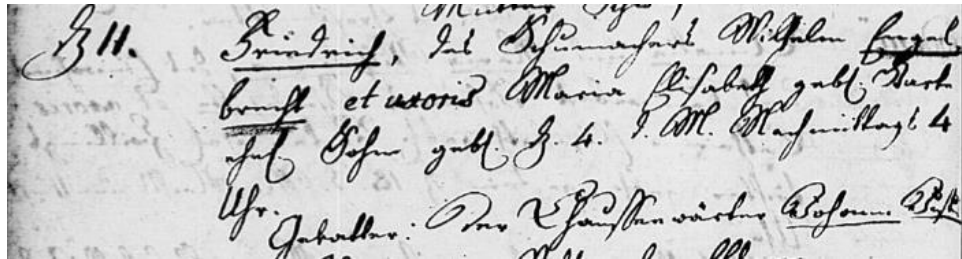 D 11. Friedrich, des Schumachers Wilhelm Engel
brecht et uxoris Maria Elisabeth geb.
ehel. Sohn geb. D. 4. d. M. Nachmittags 4
Uhr.
Gevatter: Der Chausseewärter Johann